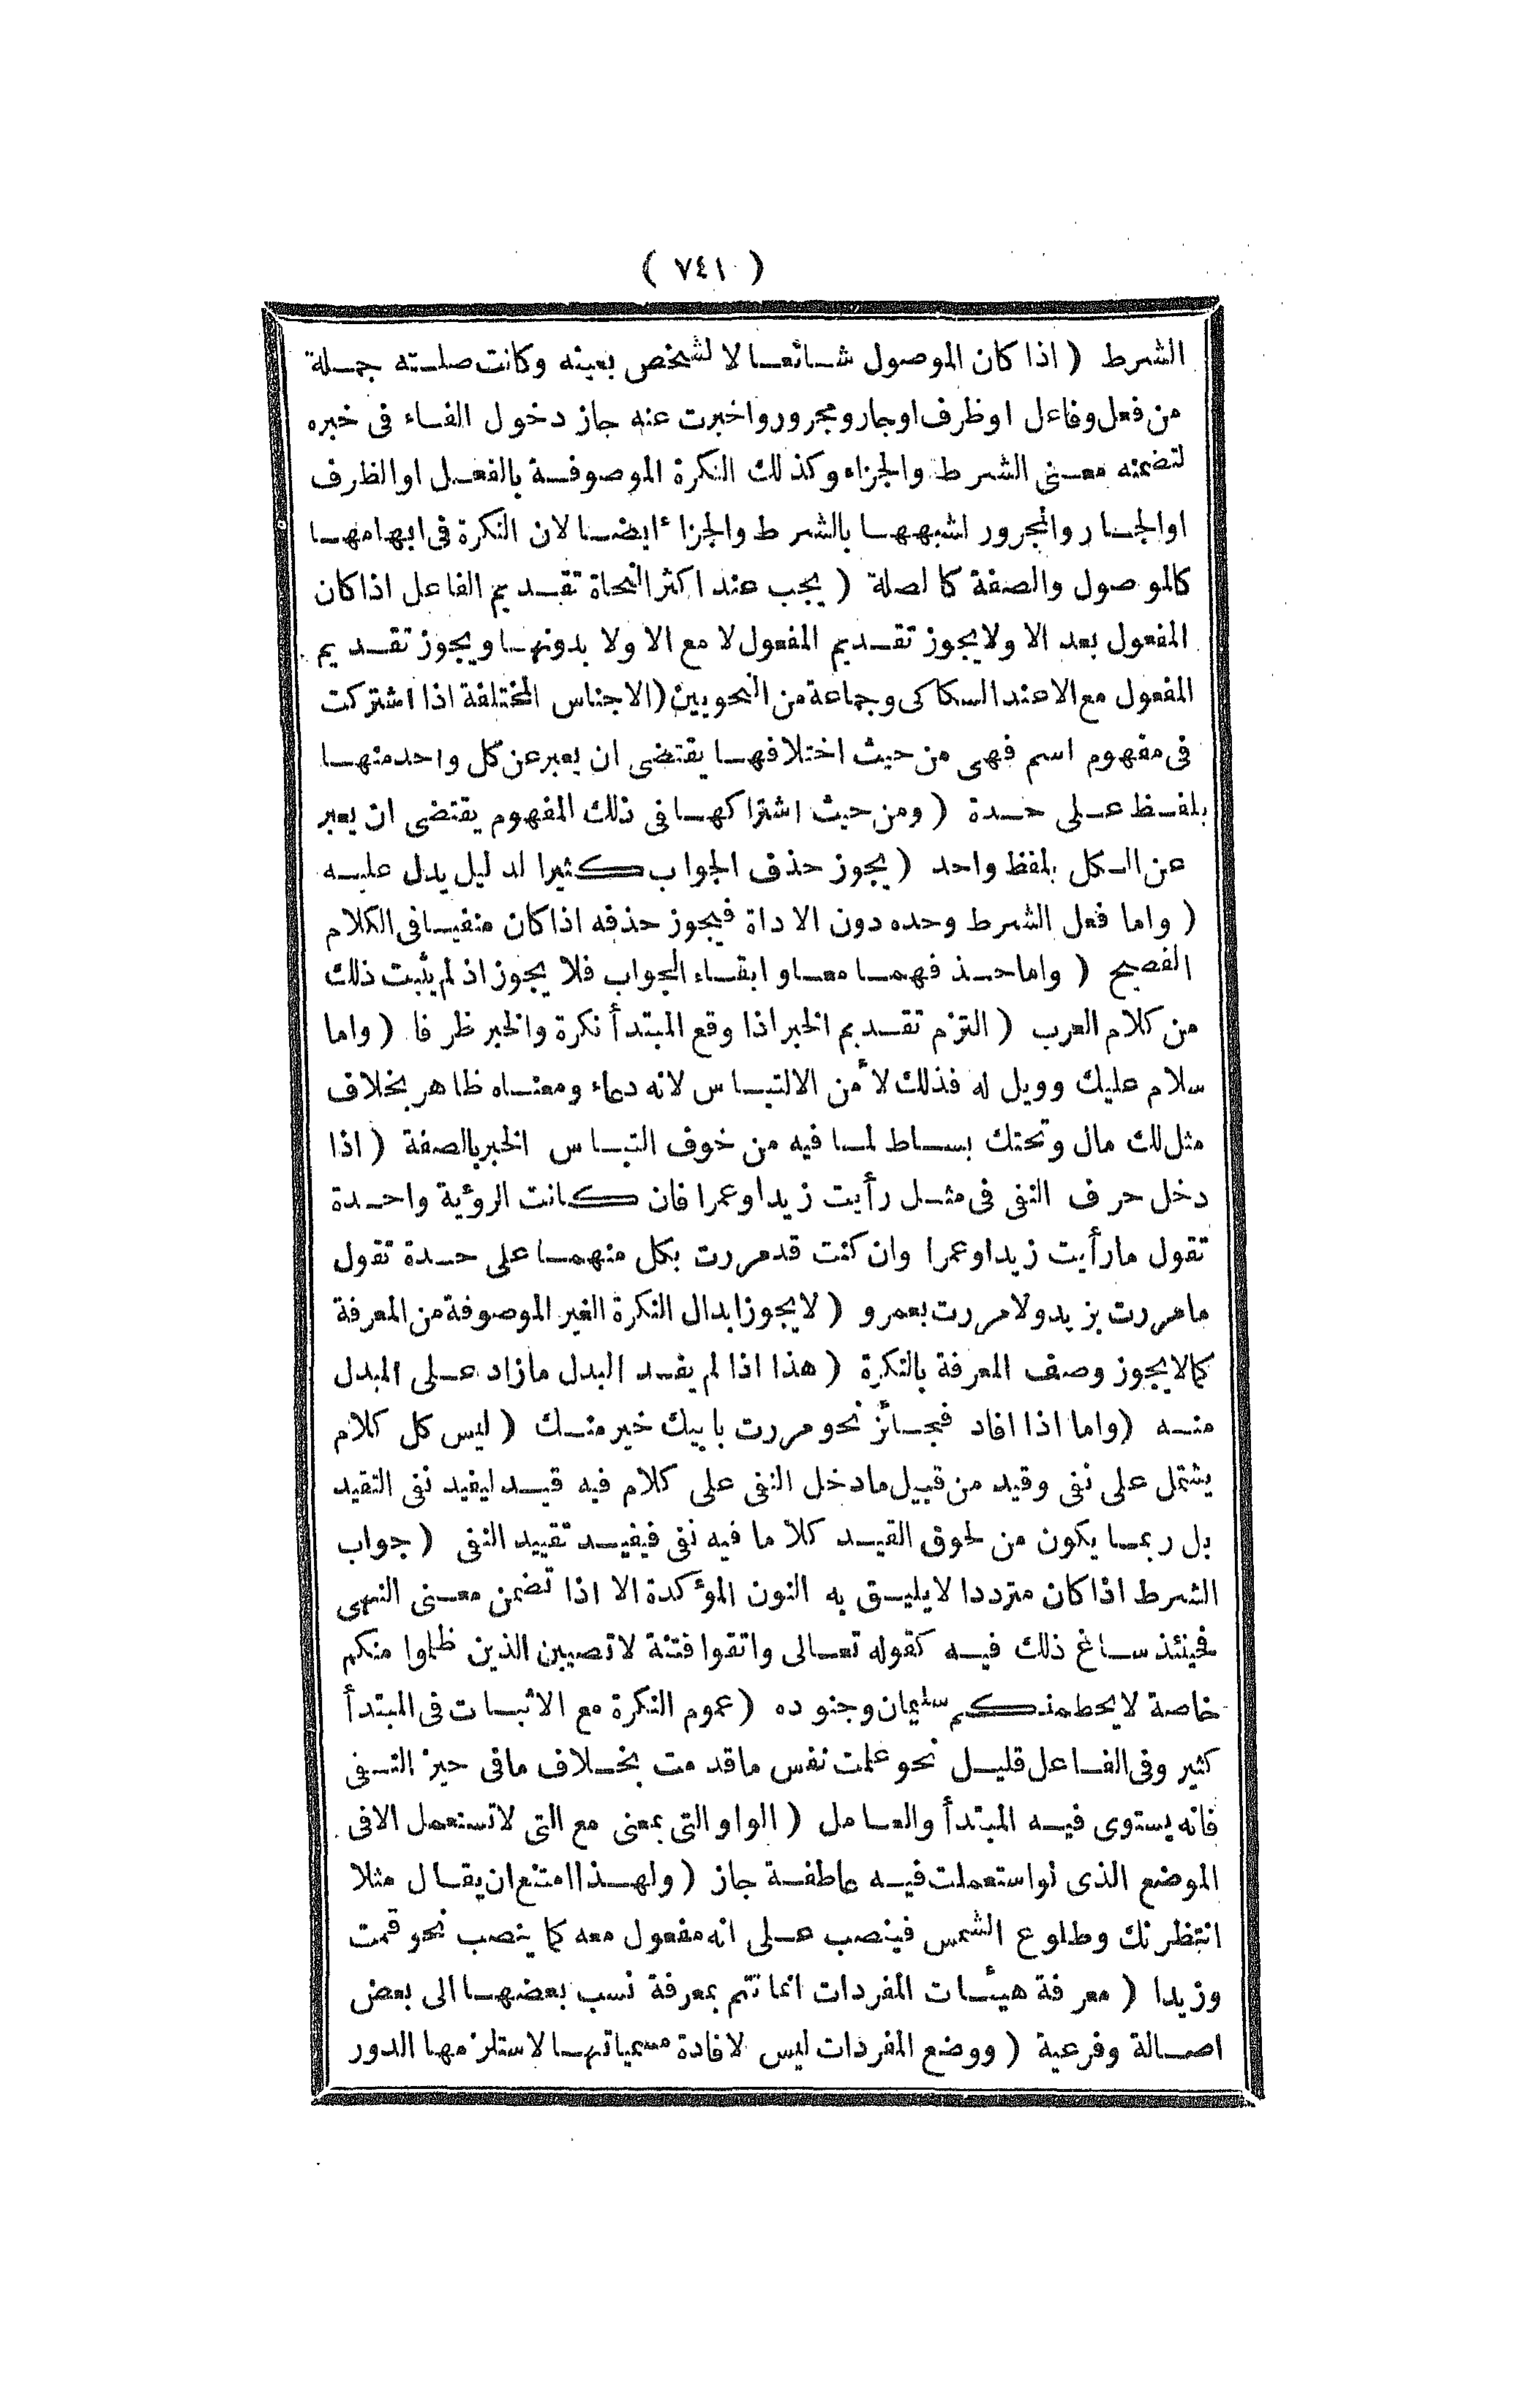 ( ٧٤١ )
الشرط ( اذا كان الموصول شائعا لا لشخص بعينه وكانت صلته جملة
من فعل وفاعل او ظرف او جار ومجرور واخبرت عنه جاز دخول الفاء فى خبره
لتضمنه معنى الشرط والجزاء وكذلك النكرة الموصوفة بالفعل او الظرف
او الجار والمجرور لشبهها بالشرط والجزاء ايضا لان النكرة فى ابهامها
كالموصول والصفة كالصلة ( يجب عند اكثر النحاة تقديم الفاعل اذا كان
المفعول بعد الا ولا يجوز تقديم المفعول لا مع الا ولا بدونها ويجوز تقديم
المفعول مع الا عند السكاكى وجماعة من النحويين ( الاجناس المختلفة اذا اشتركت
فى مفهوم اسم فهى من حيث اختلافها يقتضى ان يعبر عن كل واحد منها
بلفظ على حدة ( ومن حيث اشتراكها فى ذلك المفهوم يقتضى ان يعبر
عن الكل بلفظ واحد ( يجوز حذف الجواب كثيرا لدليل يدل عليه
( واما فعل الشرط وحده دون الاداة فيجوز حذفه اذا كان منفيا فى الكلام
الفصيح ( واما حذفهما معا وابقاء الجواب فلا يجوز اذ لم يثبت ذلك
من كلام العرب ( التزم تقديم الخبر اذا وقع المبتدأ نكرة والخبر ظرفا ( واما
سلام عليك وويل له فذلك لأمن الالتباس لانه دعاء ومعناه ظاهر بخلاف
مثل لك مال وتحتك بساط لما فيه من خوف التباس الخبر بالصفة ( اذا
دخل حرف النفى فى مثل رأيت زيدا وعمرا فان كانت الرؤية واحدة
تقول ما رأيت زيدا وعمرا وان كنت قد مررت بكل منهما على حدة تقول
ما مررت بزيد ولا مررت بعمرو ( لا يجوز ابدال النكرة الغير الموصوفة من المعرفة
كما لا يجوز وصف المعرفة بالنكرة ( هذا اذا لم يفد البدل ما زاد على المبدل
منه ( واما اذا افاد فجائز نحو مررت بابيك خير منك ( ليس كل كلام
يشتمل على نفى وقيد من قبيل ما دخل النفى على كلام فيه قيد ليفيد نفى التقيد
بل ربما يكون من لحوق القيد كلاما فيه نفى فيفيد تقييد النفى ( جواب
الشرط اذا كان مترددا لا يليق به النون المؤكدة الا اذا تضمن معنى النهى
فحينئذ ساغ ذلك فيه كقوله تعالى واتقوا فتنة لا تصيبن الذين ظلموا منكم
خاصة لا يحطمنكم سليمان وجنوده ( عموم النكرة مع الاثبات فى المبتدأ
كثير وفى الفاعل قليل نحو علمت نفس ما قدمت بخلاف ما فى حيز النفى
فانه يستوى فيه المبتدأ والعامل ( الواو التى بمعنى مع التى لا تستعمل الا فى
الموضع الذى لو استعملت فيه عاطفة جاز ( ولهذا امتنع ان يقال مثلا
انتظرتك وطلوع الشمس فينصب على انه مفعول معه كما ينصب نحو قمت
وزيدا ( معرفة هيئات المفردات انما تتم بمعرفة نسب بعضها الى بعض
اصالة وفرعية ( ووضع المفردات ليس لافادة مسمياتها لاستلزمها الدور